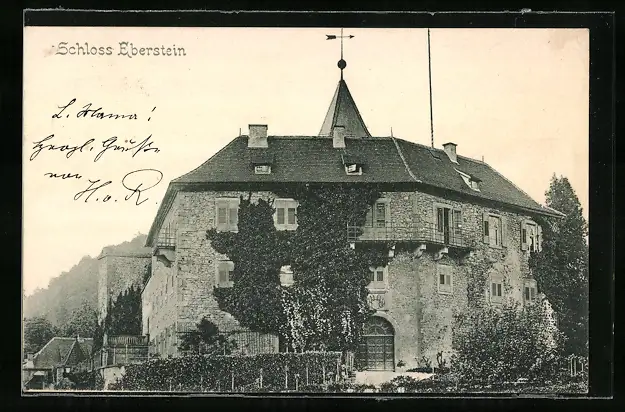 Schloss Eberstein
L. Mama!
Herzl. Grüße
von H. u. R